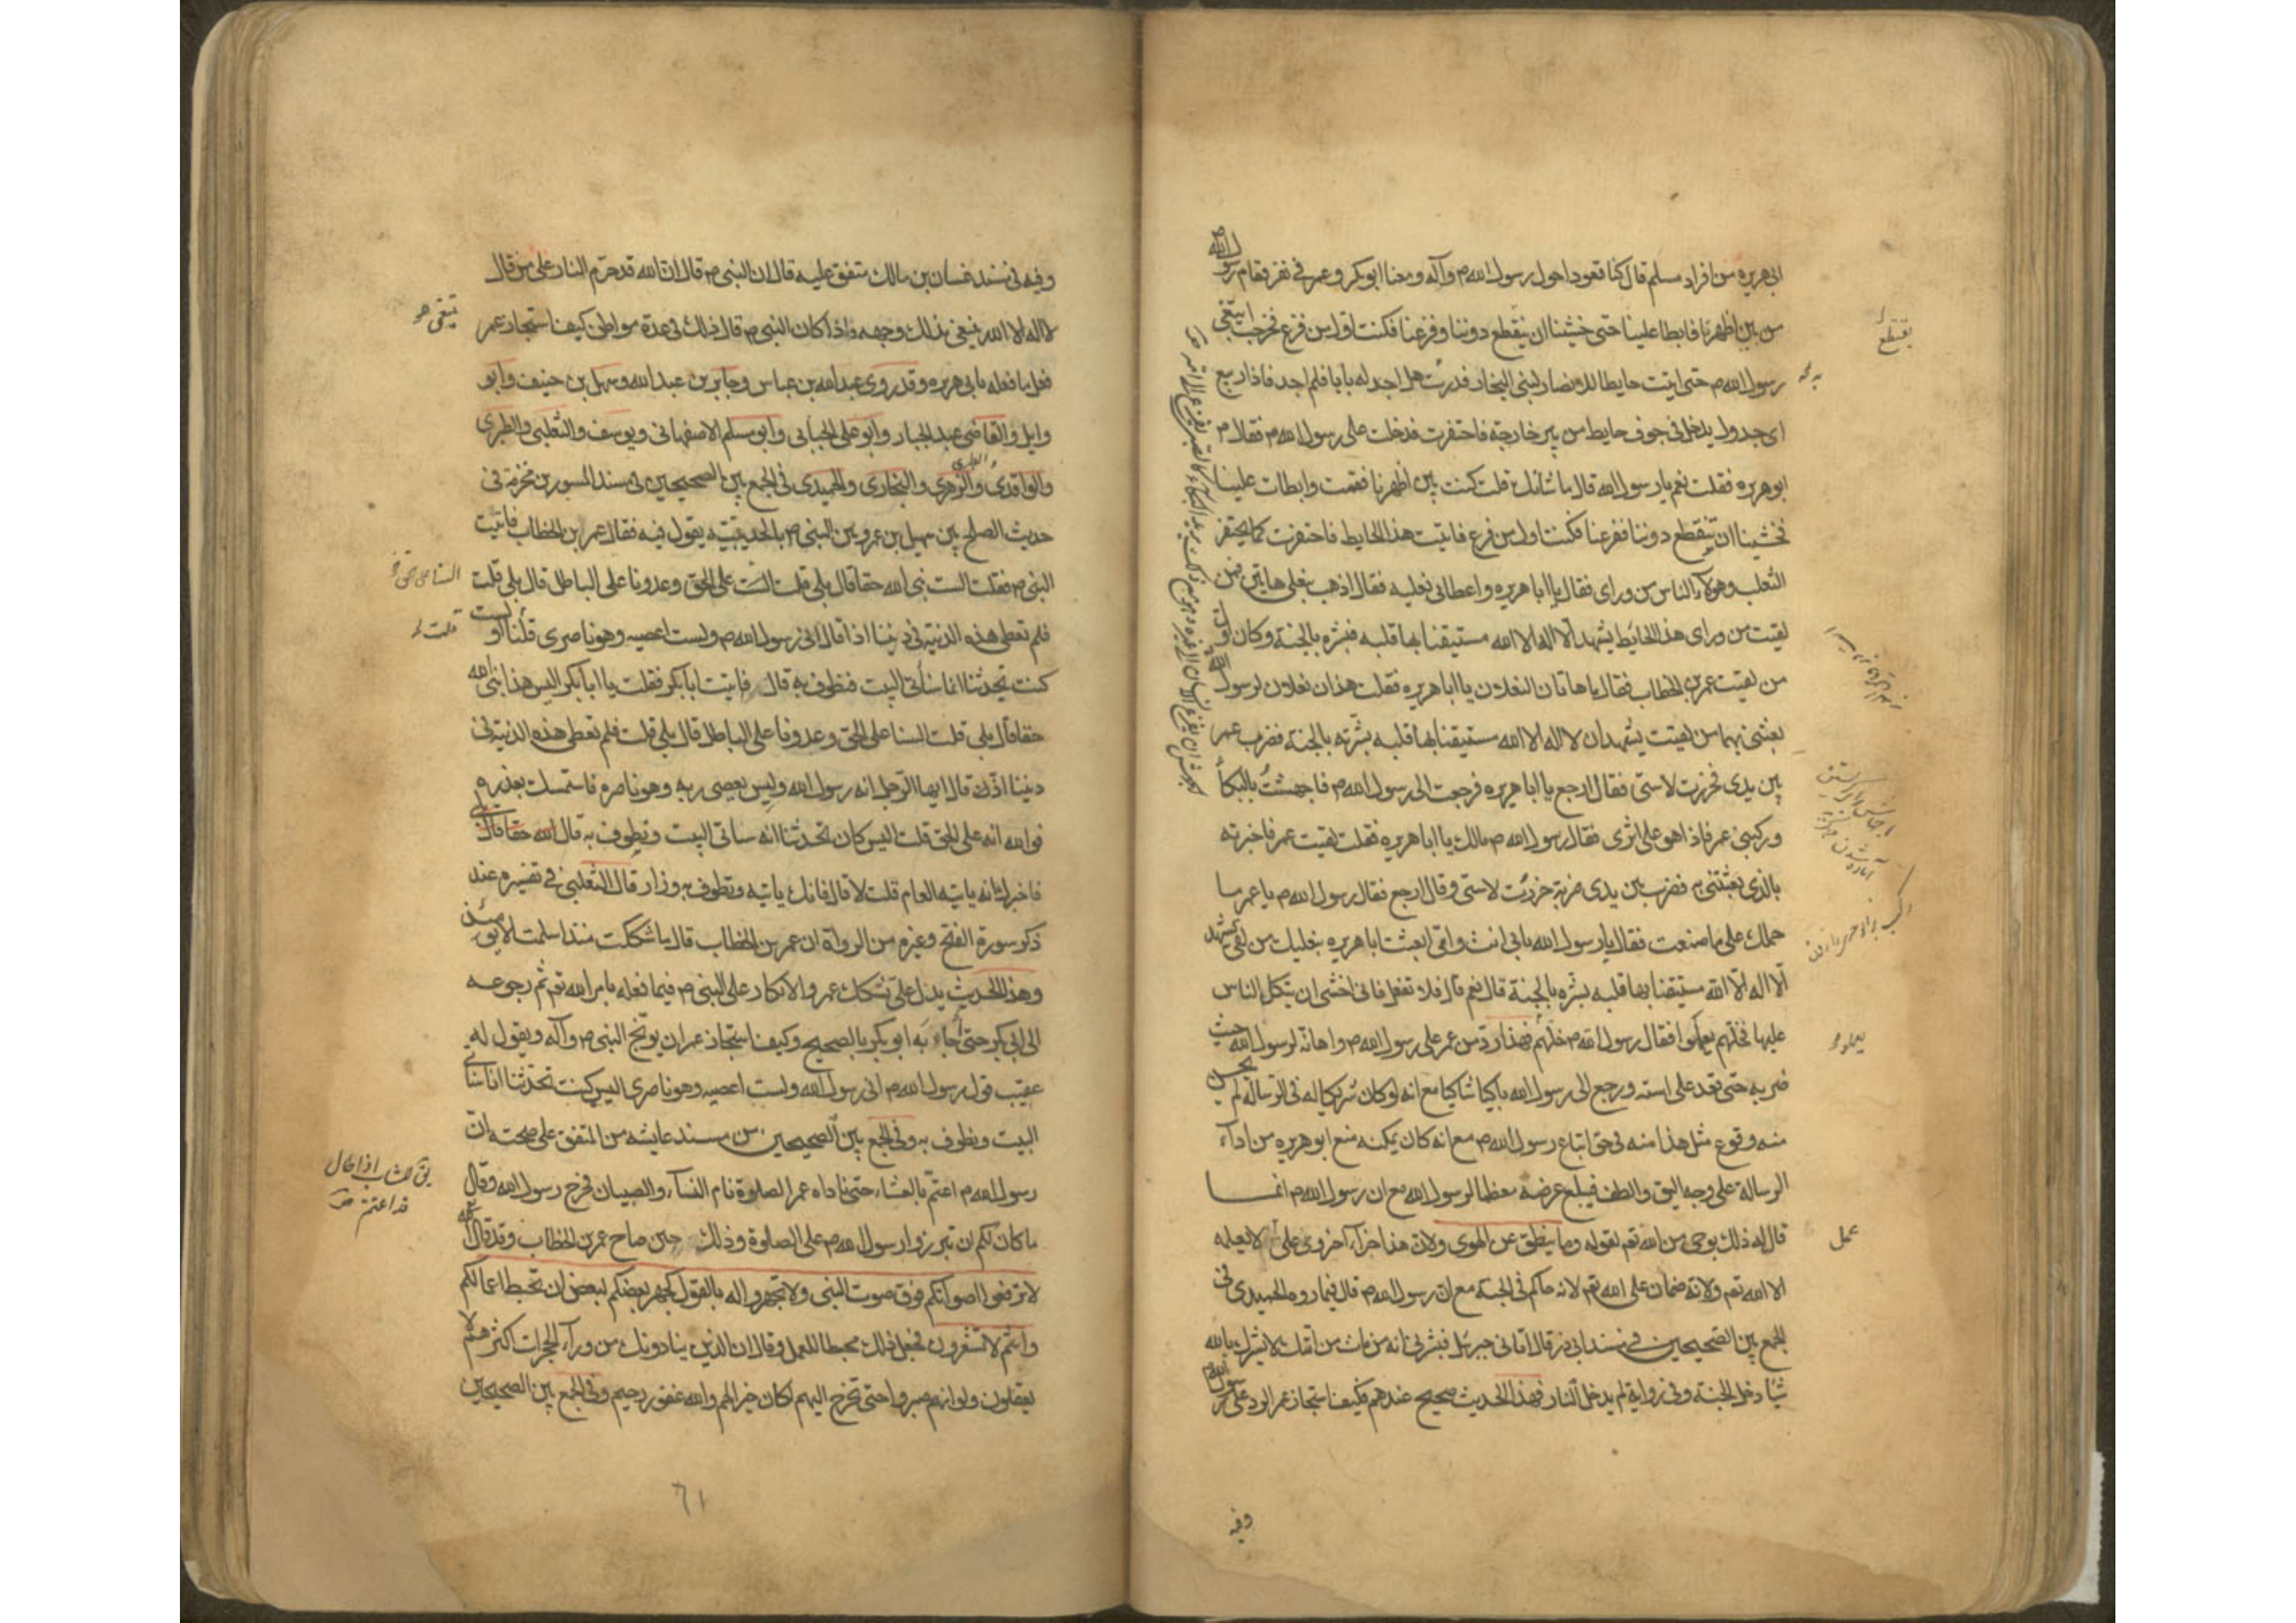 ابى هريره من افراد مسلم قال كنا قعودا حول رسول الله ص وآله ومعنا ابو بكر وعمر فى نفر فقام رسول الله
من بين اظهرنا فابطا علينا حتى خشينا ان يقطع دوننا وفزعنا فكنت اول من فزع فخرجت ابتغى
رسول الله ص حتى اتيت حايطا للانصار لبنى النجار فدرت هل اجد له بابا فلم اجد فاذا ربيع
اى جدول يدخل فى جوف حايط من بير خارجة فاحتفرت فدخلت على رسول الله ص فقال ص
ابو هريره فقلت نعم يا رسول الله قال ما شانك قلت كنت بين اظهرنا فقمت وابطات علينا
فخشينا ان تقطع دوننا ففزعنا فكنت اول من فزع فاتيت هذا الحايط فاحتفرت كما يحتفر
الثعلب وهولاء الناس من وراى فقال يا ابا هريره واعطانى نعليه فقال اذهب بنعلى هاتين فمن
لقيت من وراى هذا الحايط يشهد ان لا اله الا الله مستيقنا بها قلبه فبشره بالجنة وكان اول
من لقيت عمر بن الخطاب فقال ما هاتان النعلان يا ابا هريره فقلت هذان نعلان لرسول الله
بعثنى بهما من لقيت يشهد ان لا اله الا الله مستيقنا بها قلبه بشرته بالجنة فضرب عمر
بين يدى فخررت لاستى فقال ارجع يا ابا هريره فرجعت الى رسول الله ص فاجهشت بالبكا
وركبنى عمر فاذا هو على اثرى فقال رسول الله ص مالك يا ابا هريره فقلت لقيت عمر فاخبرته
بالذى بعثتنى به فضرب بين يدى ضربة خررت لاستى وقال ارجع فقال رسول الله ص يا عمر ما
حملك على ما صنعت فقال يا رسول الله بابى انت وامى ابعثت ابا هريره بنعليك من لقى يشهد
الا اله الا الله مستيقنا بها قلبه بشره بالجنة قال نعم قال فلا تفعل فانى اخشى ان يتكل الناس
عليها فخلهم يعملوا فقال رسول الله ص خلهم فهذا رد من عمر على رسول الله ص واهانة لرسول الله حيث
ضربه حتى قعد على استه ورجع الى رسول الله باكيا شاكيا مع انه لو كان شريكا له فى الرسالة لم يحسن
منه وقوع مثل هذا منه فى حق اتباع رسول الله ص مع انه كان يمكنه منع ابو هريره من اداء
الرسالة على وجه اليق والطف فيبلغ غرضه معظما لرسول الله مع ان رسول الله ص انما
قال له ذلك بوحى من الله تعم لقوله وما ينطق عن الهوى ولان هذا جزاء اخروى على لا يعلمه
الا الله تعم ولانه ضمان على الله تعم لانه حاكم فى الجنة مع ان رسول الله ص قال فيما رواه الحميدى فى
الجمع بين الصحيحين فى مسند ابى ذر قال اتانى جبرئيل فبشرنى انه من مات من امتك لا يشرك بالله
شيا دخل الجنة وفى رواية لم يدخل النار فهذا الحديث صحيح عندهم فكيف استجاز عمر الرد على رسول الله ص
وفيه
يقتطع
عمل
وفيه فى مسند غسان بن مالك متفق عليه قال ان النبى ص قال ان الله قد حرم النار على من قال
لا اله الا الله يبتغى بذلك وجهه واذا كان النبى ص قال ذلك فى عدة مواطن كيف استجاز عمر
فعل ما فعله بابى هريره وقد روى عبد الله بن عباس وجابر بن عبد الله وسهل بن حنيف وابو
وايل والقاضى عبد الجبار وابو على الجبائى وابو مسلم الاصفهانى ويوسف والثعلبى والطبرى
والواقدى والزهرى والبخارى والحميدى فى الجمع بين الصحيحين فى مسند المسور بن مخرمة فى
حديث الصلح بين سهيل بن عمرو وبين النبى ص بالحديبية يقول فيه فقال عمر بن الخطاب فاتيت
النبى ص فقلت الست نبى الله حقا قال بلى قلت الست على الحق وعدونا على الباطل قال بلى قلت
فلم تعطى هذه الدنية فى ديننا اذا قال انى رسول الله ص ولست اعصيه وهو ناصرى قلنا او ليست
كنت تحدثنا انا سنأتى البيت فنطوف به قال فاتيت ابا بكر فقلت يا ابا بكر اليس هذا نبى الله
حقا قال بلى قلت السنا على الحق وعدونا على الباطل قال بلى قلت فلم تعطى هذه الدنية فى
ديننا اذن قال ايها الرجل انه رسول الله وليس يعصى ربه وهو ناصره فاستمسك بعذره
فوالله انه على الحق قلت اليس كان تحدثنا انه سناتى البيت ونطوف به قال الله حقا قال
فاخبرك انه ياتيه العام قلت لا قال فانك ياتيه وتطوف به وزار قال الثعلبى فى تفسيره عند
ذكر سورة الفتح وغيره من الرواة ان عمر بن الخطاب قال ما شككت منذ اسلمت الا يومئذ
وهذا الحديث يدل على تشكك عمر والانكار على النبى ص فيما فعله بامر الله تعم ثم رجوعه
الى ابى بكر حتى اجاء به ابو بكر بالصحيح وكيف استجاز عمر ان يوبخ النبى ص وآله ويقول له
عقيب قول رسول الله ص انى رسول الله ولست اعصيه وهو ناصرى اليس كنت تحدثنا انا سناتى
البيت ونطوف به وفى الجمع بين الصحيحين من مسند عايشه من المتفق على صحته ان
رسول الله ص اعتم بالعشاء حتى ناداه عمر الصلوة نام النساء والصبيان فخرج رسول الله وقال
ما كان لكم ان تبرزوا رسول الله ص على الصلوة وذلك حين صاح عمر بن الخطاب وقد قال الله
لا ترفعوا اصواتكم فوق صوت النبى ولا تجهروا له بالقول كجهر بعضكم لبعض ان تحبط اعمالكم
وانتم لا تشعرون فجعل ذلك محبطا للعمل وقال ان الذين ينادونك من وراء الحجرات اكثرهم لا
يعقلون ولو انهم صبروا حتى تخرج اليهم لكان خيرا لهم والله غفور رحيم وفى الجمع بين الصحيحين
٦١